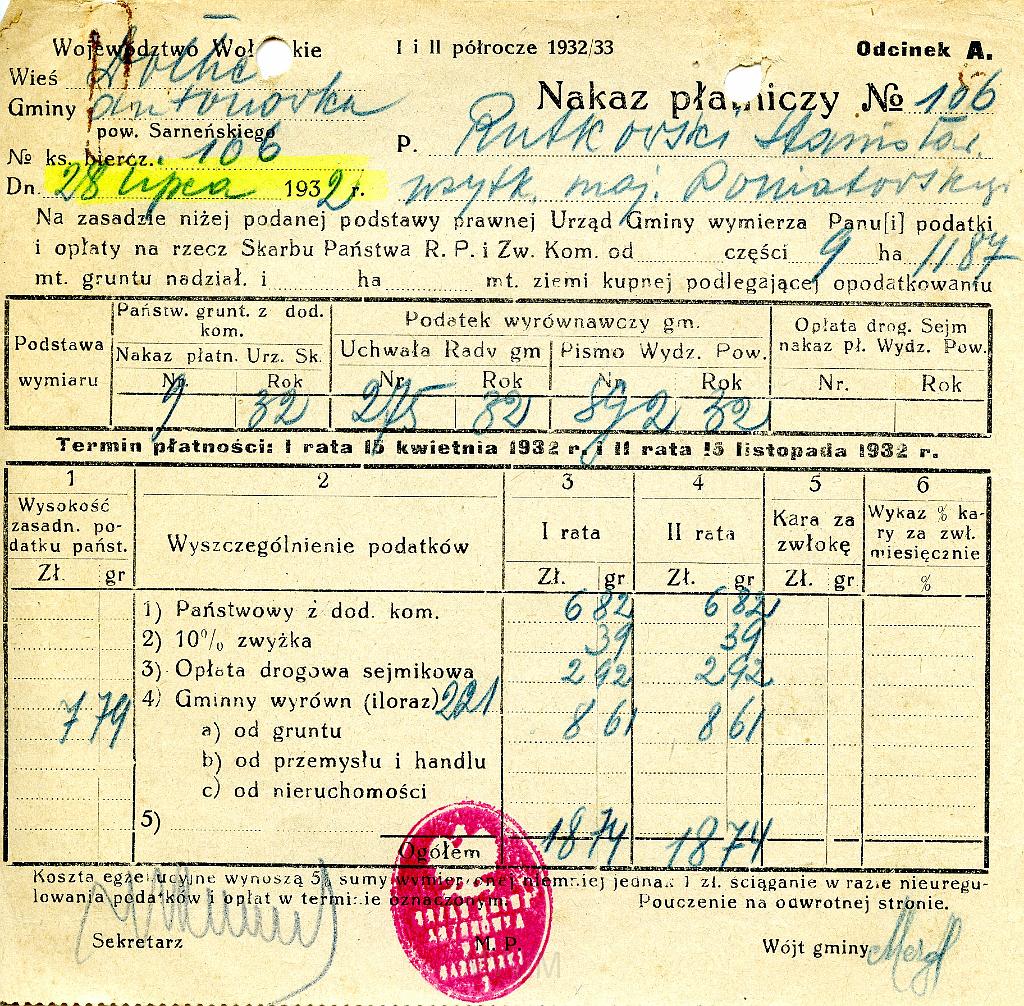 Województwo Woł kie
I i II półrocze 1932/33
Odcinek A.
Wieś
Gminy Antonovka
pow. Sarneńskiego
Nakaz płatniczy № 106
№ ks. biercz. 106
P. Rutkovski Stanisłav
Dn. 28 lipca 1932 r.
użytk. maj. Poniatovskiego
Na zasadzie niżej podanej podstawy prawnej Urząd Gminy wymierza Panu[i] podatki
i opłaty na rzecz Skarbu Państwa R. P. i Zw. Kom. od części 9 ha 1187
mt. gruntu nadział. i ha mt. ziemi kupnej podlegającej opodatkowaniu
Podstawa wymiaru
Państw. grunt. z dod. kom.
Podatek wyrównawczy gm.
Opłata drog. Sejm nakaz pł. Wydz. Pow.
Nakaz płatn. Urz. Sk.
Uchwała Rady gm
Pismo Wydz. Pow.
Nr. Rok Nr. Rok Nr. Rok Nr. Rok
9 32 275 32 892 32
Termin płatności: I rata 15 kwietnia 1932 r. i II rata 15 listopada 1932 r.
1 2 3 4 5 6
Wysokość zasadn. podatku państ.
Wyszczególnienie podatków
I rata
II rata
Kara za zwłokę
Wykaz % kary za zwł. miesięcznie
Zł. gr Zł. gr Zł. gr Zł. gr %
1) Państwowy z dod. kom. 6 82 6 82
2) 10% zwyżka 39 39
3) Opłata drogowa sejmikowa 2 92 2 92
4) Gminny wyrówn (iloraz) 221
7 79 a) od gruntu 8 61 8 61
b) od przemysłu i handlu
c) od nieruchomości
5)
Ogółem 18 74 18 74
Koszta egzekucyjne wynoszą 5% sumy wymierzonej niemniej jednak 1 zł. ściąganie w razie nieuregu-
lowania podatków i opłat w terminie oznaczonym. Pouczenie na odwrotnej stronie.
Sekretarz
M. P.
Wójt gminy